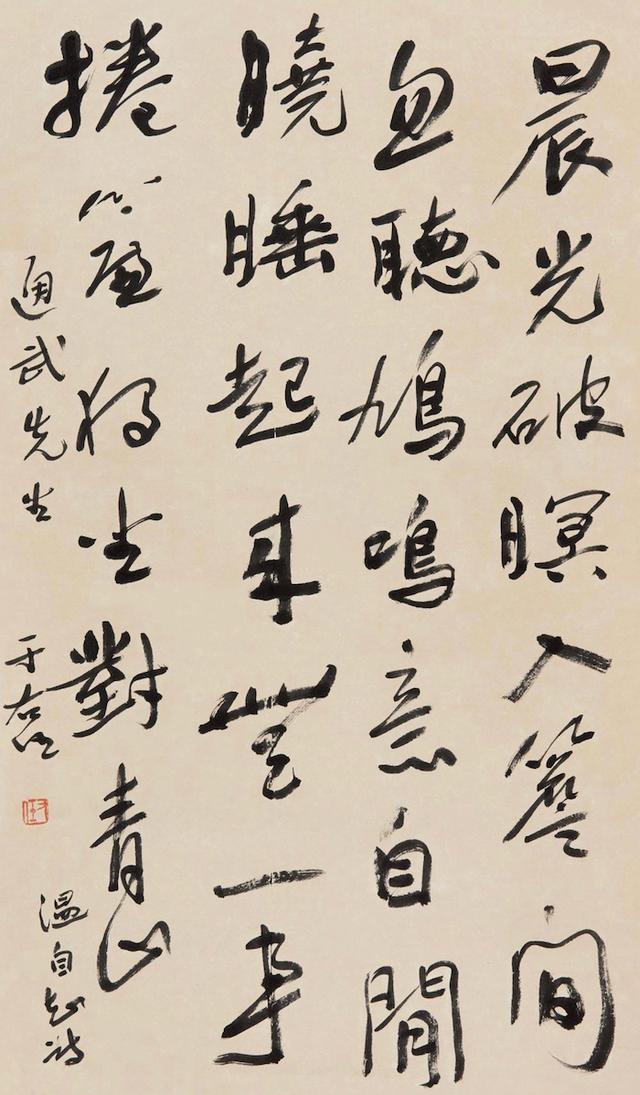 晨光破暝入簷間
忽聽鳩鳴意自閒
曉睡起來無一事
捲簾獨坐對青山
溫自知詩
通武先生 于右任
右任